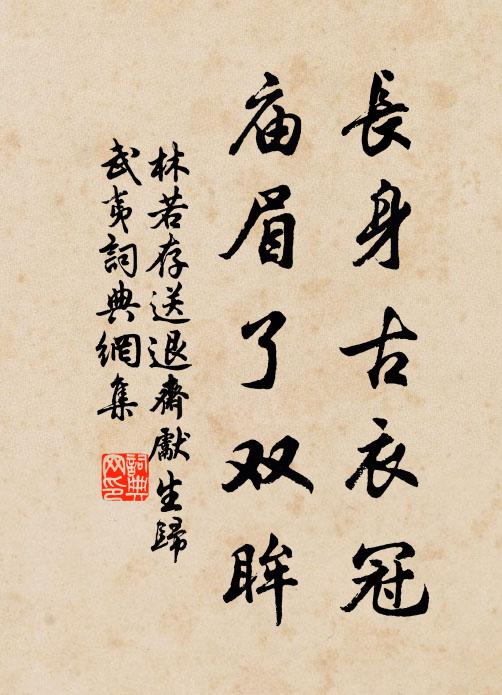 長身古衣冠
庙眉了双眸
林若存送退齋獻生歸
武夷詞典網集
詞典
网印